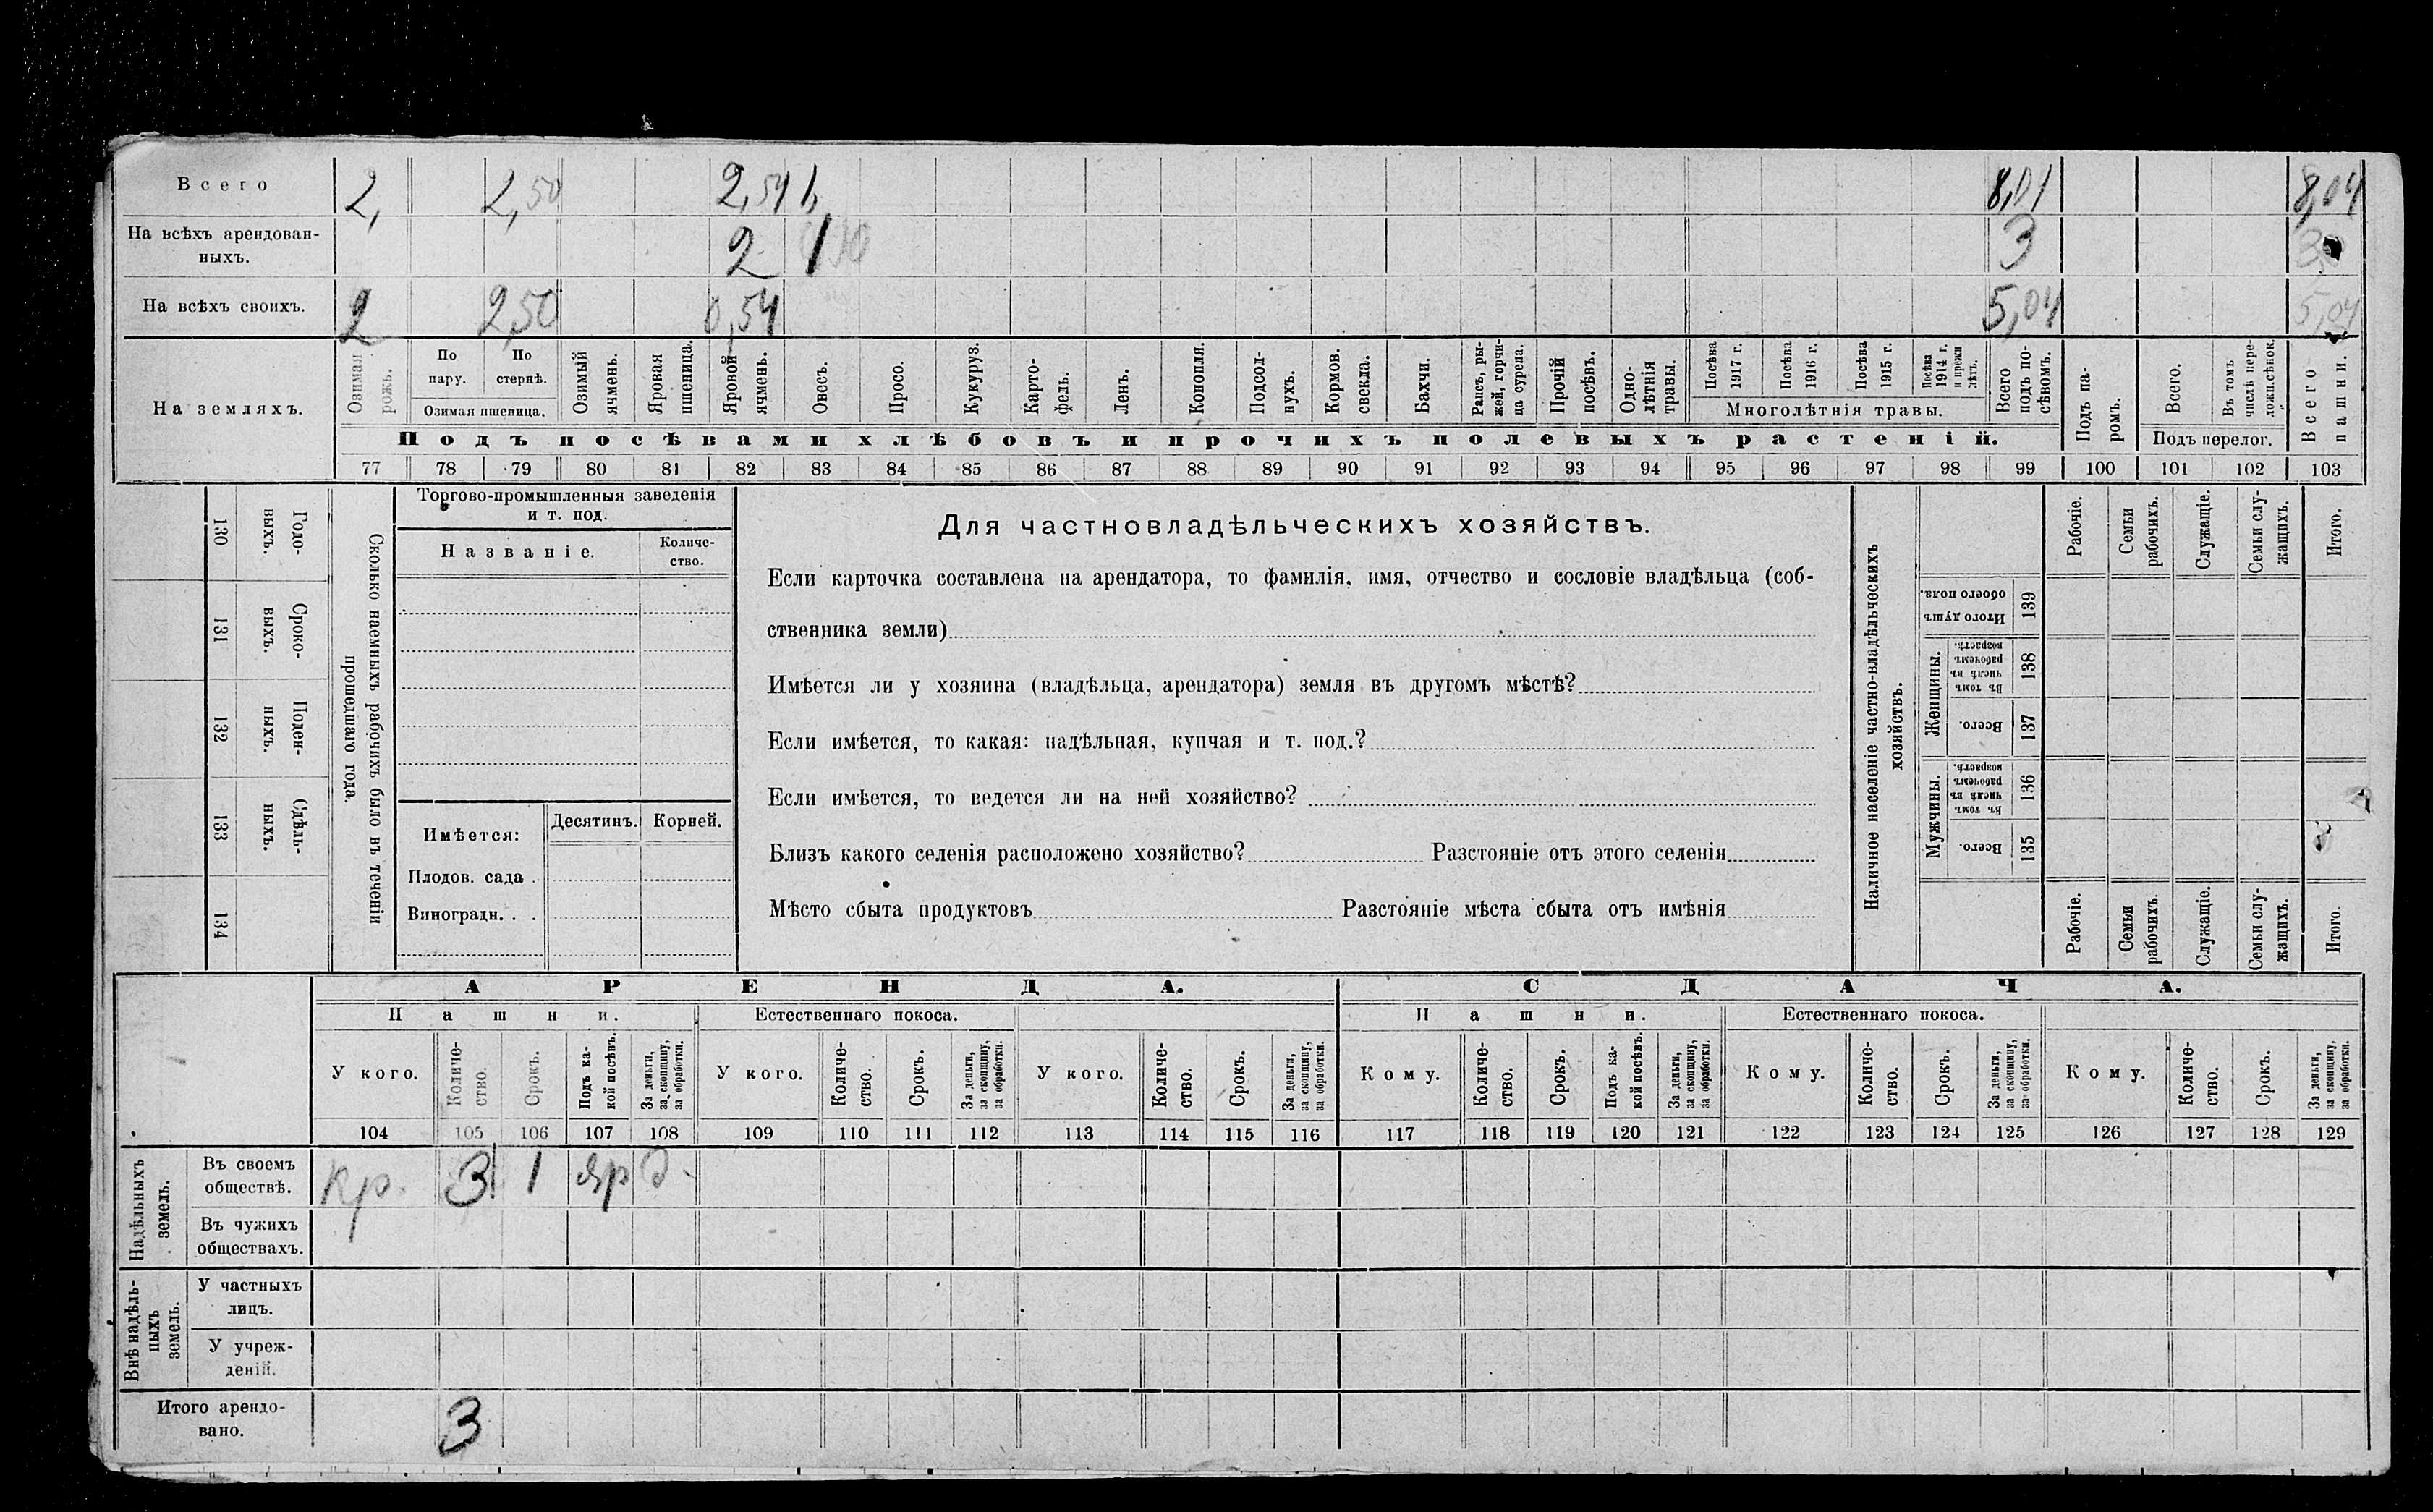 Всего 2, 2,50 2,54 1, 8,04
На всѣхъ арендован-
ныхъ. 2 1 3
На всѣхъ своихъ. 2 2,50 0,54 5,04 5,04
На земляхъ.
Озимая рожь.
По пару.
По стернѣ.
Озимая пшеница.
Озимый ячмень.
Яровая пшеница.
Яровой ячмень.
Овесъ.
Просо.
Кукуруз.
Карто-
фель.
Ленъ.
Конопля.
Подсол-
нухъ.
Кормов. свекла.
Бахчи.
Рапсъ, ры-
жей, горчи-
ца сурепа.
Прочій посѣвъ.
Одно-
лѣтнія травы.
Посѣва 1917 г.
Посѣва 1916 г.
Посѣва 1915 г.
Посѣва 1914 г. и прежн лѣтъ.
Многолѣтнія травы.
Всего подъ по-
сѣвомъ.
Подъ па-
ромъ.
Всего.
Въ томъ числѣ пере-
ложн.сѣнок.
Подъ перелог.
Всего пашни.
Подъ посѣвами хлѣбовъ и прочихъ полевыхъ растеній.
77 78 79 80 81 82 83 84 85 86 87 88 89 90 91 92 93 94 95 96 97 98 99 100 101 102 103
130 Годо-
выхъ.
131 Сроко-
выхъ.
132 Поден-
ныхъ.
133 Сдѣль-
ныхъ.
134
Сколько наемныхъ рабочихъ было въ теченіи
прошедшаго года.
Торгово-промышленныя заведенія
и т. под.
Названіе.
Количе-
ство.
Имѣется: Десятинъ. Корней.
Плодов. сада .
Виноградн. . .
Для частновладѣльческихъ хозяйствъ.
Если карточка составлена на арендатора, то фамилія, имя, отчество и сословіе владѣльца (соб-
ственника земли)
Имѣется ли у хозяина (владѣльца, арендатора) земля въ другомъ мѣстѣ?
Если имѣется, то какая: надѣльная, купчая и т. под.?
Если имѣется, то ведется ли на ней хозяйство?
Близъ какого селенія расположено хозяйство? Разстояніе отъ этого селенія
Мѣсто сбыта продуктовъ Разстояніе мѣста сбыта отъ имѣнія
Наличное населеніе частно-владѣльческихъ
хозяйствъ.
Рабочіе.
Семьи рабочихъ.
Служащіе.
Семьи слу-
жащихъ.
Итого.
Итого душъ обоего пола. 139
Женщины.
Въ томъ числѣ въ рабочемъ возрастѣ. 138
Всего. 137
Мужчины.
Въ томъ числѣ въ рабочемъ возрастѣ. 136
Всего. 135
Рабочіе.
Семьи рабочихъ.
Служащіе.
Семьи слу-
жащихъ.
Итого.
АРЕНДА. СДАЧА.
Пашни. Естественнаго покоса. Пашни. Естественнаго покоса.
У кого.
Количе-
ство.
Срокъ.
Подъ ка-
кой посѣвъ.
За деньги, за скопщину, за обработки.
У кого.
Количе-
ство.
Срокъ.
За деньги, за скопщину, за обработки.
У кого.
Количе-
ство.
Срокъ.
За деньги, за скопщину, за обработки.
Кому.
Количе-
ство.
Срокъ.
Подъ ка-
кой посѣвъ.
За деньги, за скопщину, за обработки.
Кому.
Количе-
ство.
Срокъ.
За деньги, за скопщину, за обработки.
Кому.
Количе-
ство.
Срокъ.
За деньги, за скопщину, за обработки.
104 105 106 107 108 109 110 111 112 113 114 115 116 117 118 119 120 121 122 123 124 125 126 127 128 129
Надѣльныхъ земель.
Въ своемъ
обществѣ. Кр. 3 1 яр д.
Въ чужихъ
обществахъ.
Внѣ надѣль-
ныхъ земель.
У частныхъ
лицъ.
У учреж-
деній.
Итого арендо-
вано. 3